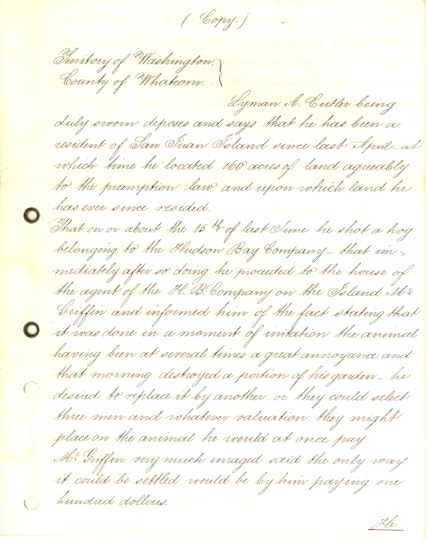 ( Copy. )
Territory of Washington }
County of Whatcom. }
Lyman A. Cutler being
duly sworn deposes and says that he has been a
resident of San Juan Island since last April at
which time he located 160 acres of land agreeably
to the premption law and upon which land he
has ever since resided.
That on or about the 15th of last June he shot a hog
belonging to the Hudson Bay Company – that im-
mediately after so doing he proceded to the house of
the agent of the H. B. Company on the Island Mr
Griffin and informed him of the fact stating that
it was done in a moment of irritation the animal
having been at several times a great annoyance and
that morning destroyed a portion of his garden – he
desired to replace it by another or they could select
three men and whatever valuation they might
place on the animal he would at once pay.
Mr Griffin very much enraged said the only way
it could be settled would be by him paying one
hundred dollars.
He